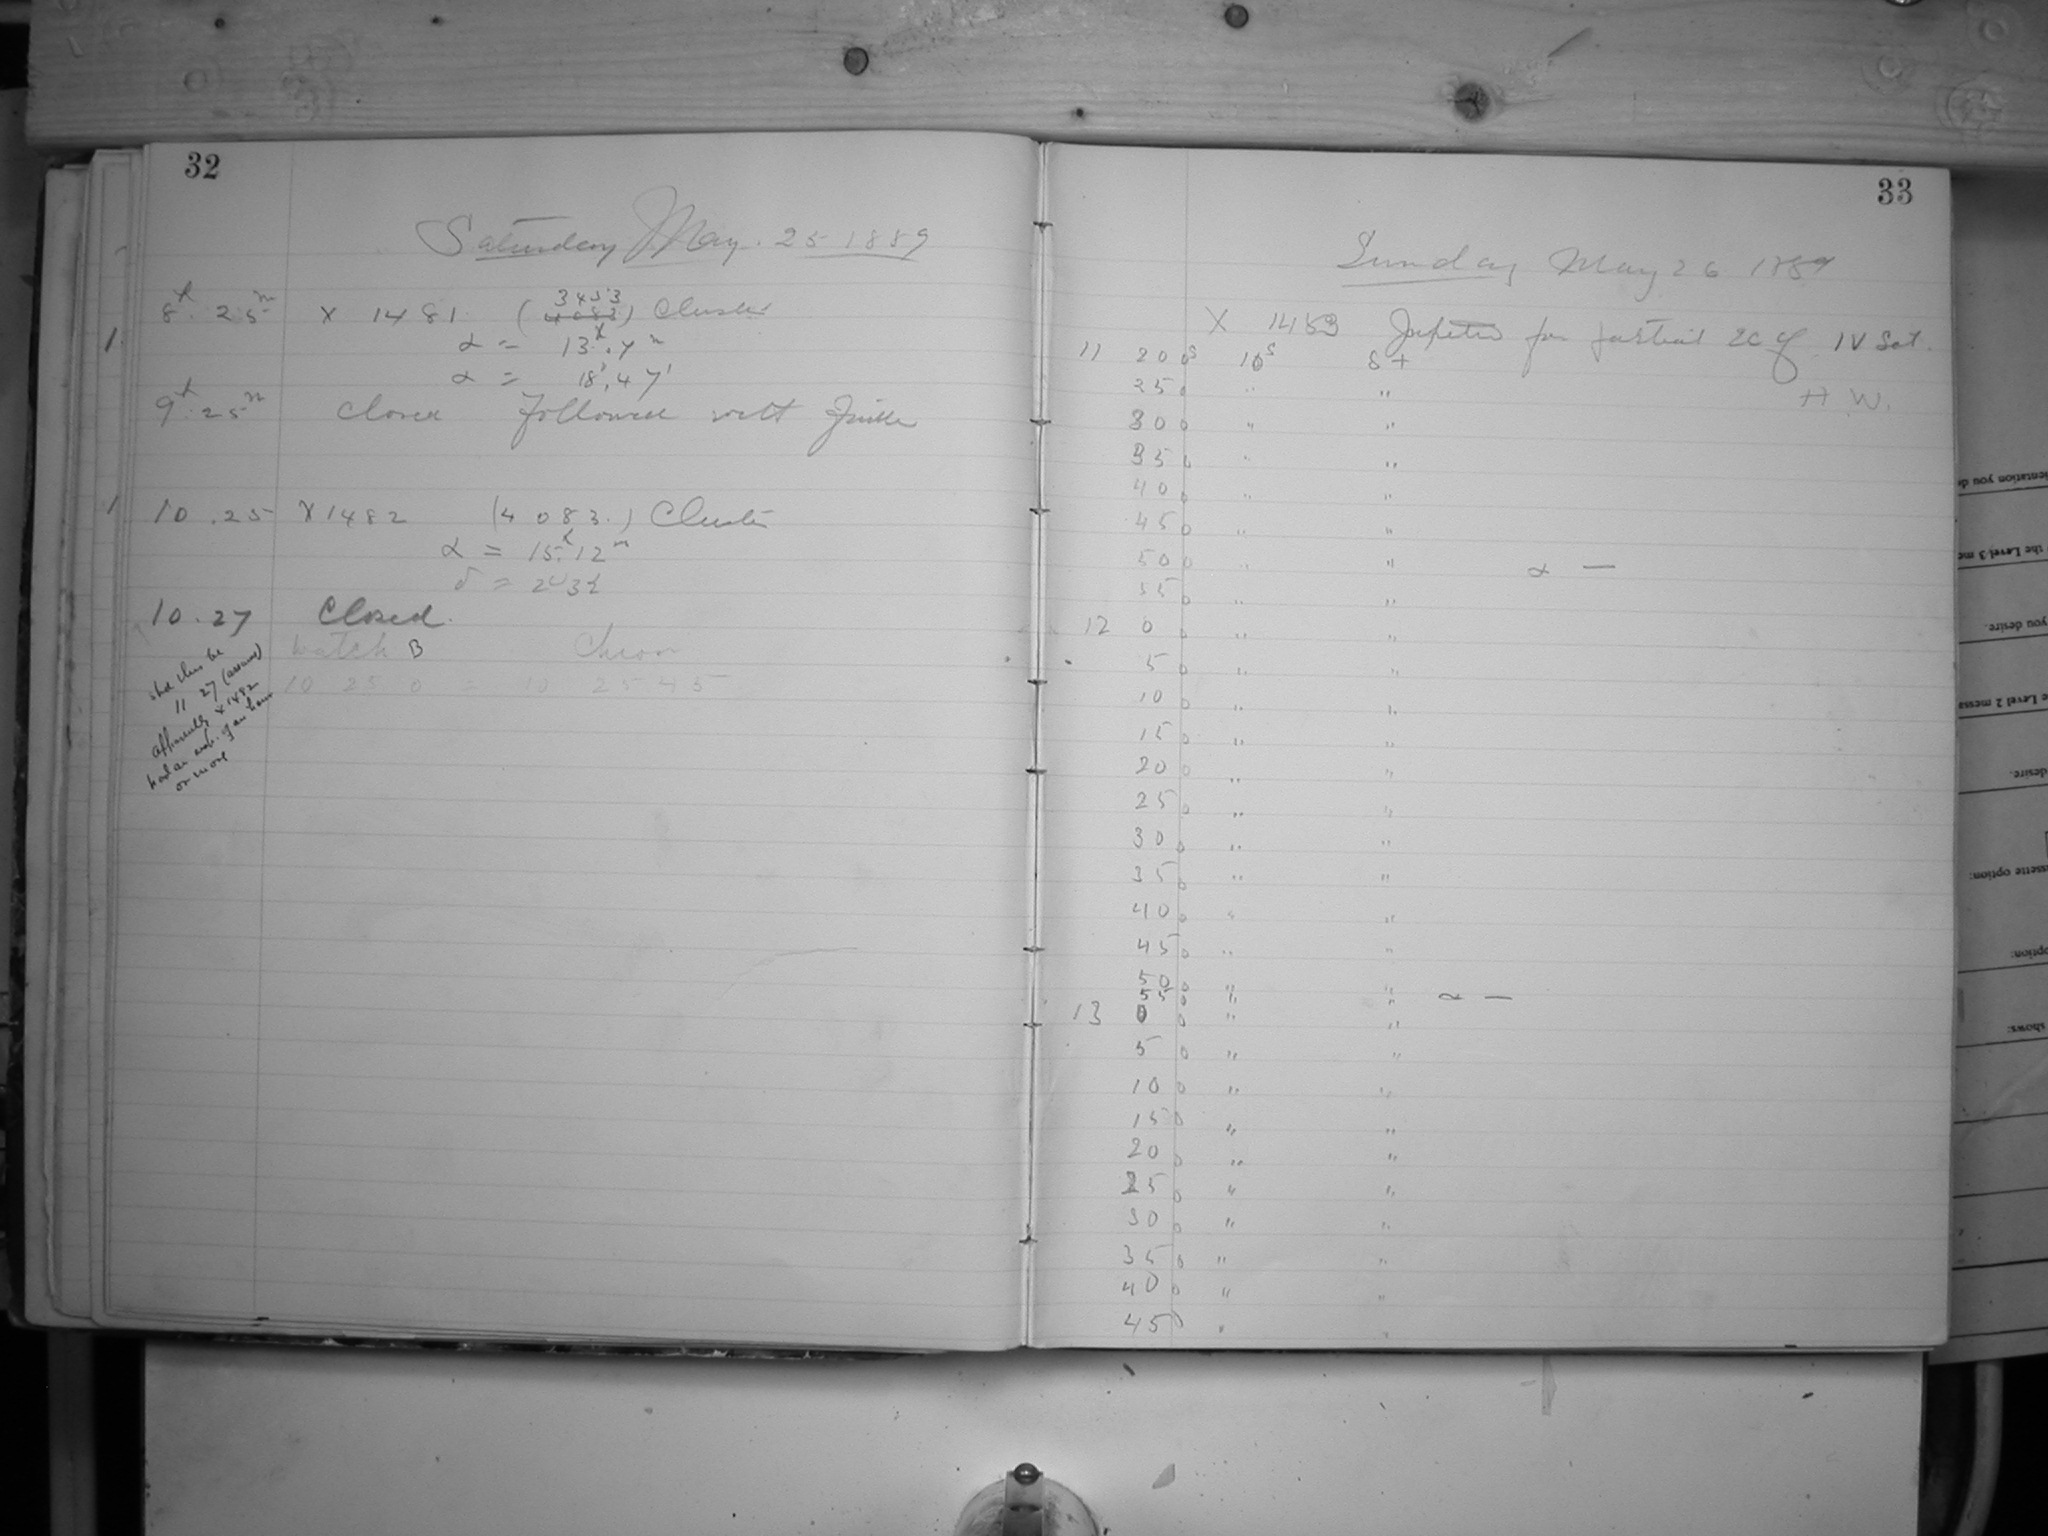 32
Saturday May. 25 1889
8h. 25m X 1481 (3453 4083) Cluster
1
α = 13h.7m
α = 18°.47'
9h.25m Closed Followed with Finder
1 10.25 X1482 (4083.) Cluster
α = 15h.12m
δ = 2°32
10.27 Closed.
Watch B Chron
10 25 0 = 10 25 45
11 27 (assumed)
apparently X 1482
had an exp. of an hour
or more
33
Sunday May 26 1889
X 1483 Jupiter for partial Ec of IV Sat.
11 20 0s 10s δ +
H.W.
25 0 " "
30 0 " "
35 0 " "
40 0 " "
45 0 " "
50 0 " " α —
55 0 " "
12 0 0 " "
5 0 " "
10 0 " "
15 0 " "
20 0 " "
25 0 " "
30 0 " "
35 0 " "
40 0 " "
45 0 " "
50 0 " "
55 0 " " α —
13 0 0 " "
5 0 " "
10 0 " "
15 0 " "
20 0 " "
25 0 " "
30 0 " "
35 0 " "
40 0 " "
45 0 " "
entation you de
the Level 3 me
you desire.
e Level 2 messa
desire.
ssette option:
option:
shows: